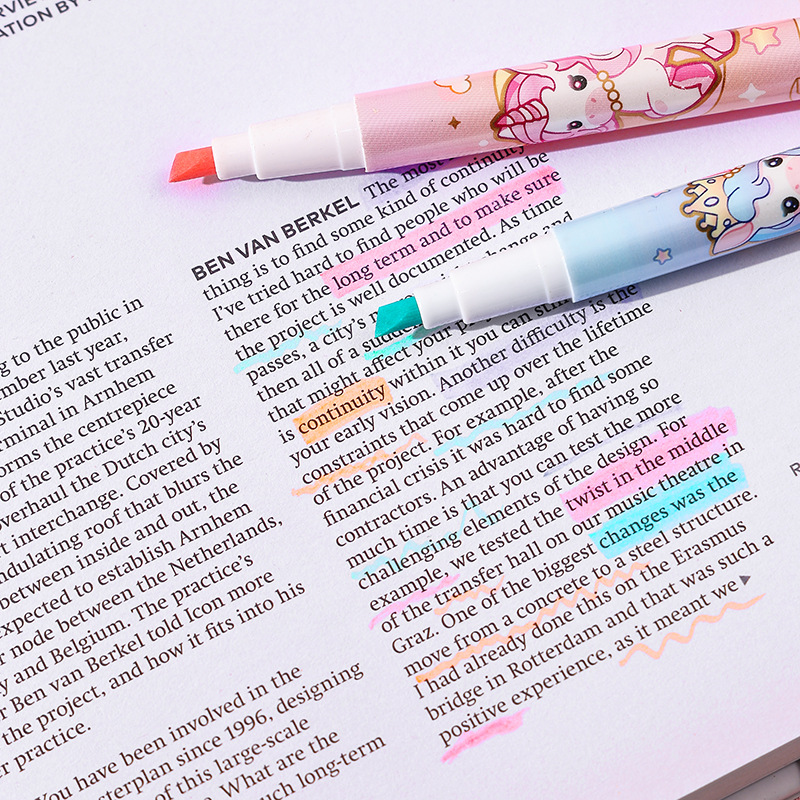 ATION BY
g to the public in
mber last year,
Studio's vast transfer
rminal in Arnhem
orms the centrepiece
of the practice's 20-year
overhaul the Dutch city's
rt interchange. Covered by
ndulating roof that blurs the
between inside and out, the
xpected to establish Arnhem
r node between the Netherlands,
y and Belgium. The practice's
r Ben van Berkel told Icon more
the project, and how it fits into his
r practice.
You have been involved in the
sterplan since 1996, designing
of this large-scale
. What are the
uch long-term
BEN VAN BERKEL The most
thing is to find some kind of continuity
I've tried hard to find people who will be
there for the long term and to make sure
the project is well documented. As time
passes, a city's change and
then all of a
that might affect your
is continuity within it you can
your early vision. Another difficulty is the
constraints that come up over the lifetime
of the project. For example, after the
financial crisis it was hard to find some
contractors. An advantage of having so
much time is that you can test the more
challenging elements of the design. For
example, we tested the twist in the middle
of the transfer hall on our music theatre in
Graz. One of the biggest changes was the
move from a concrete to a steel structure.
I had already done this on the Erasmus
bridge in Rotterdam and that was such a
positive experience, as it meant we▶